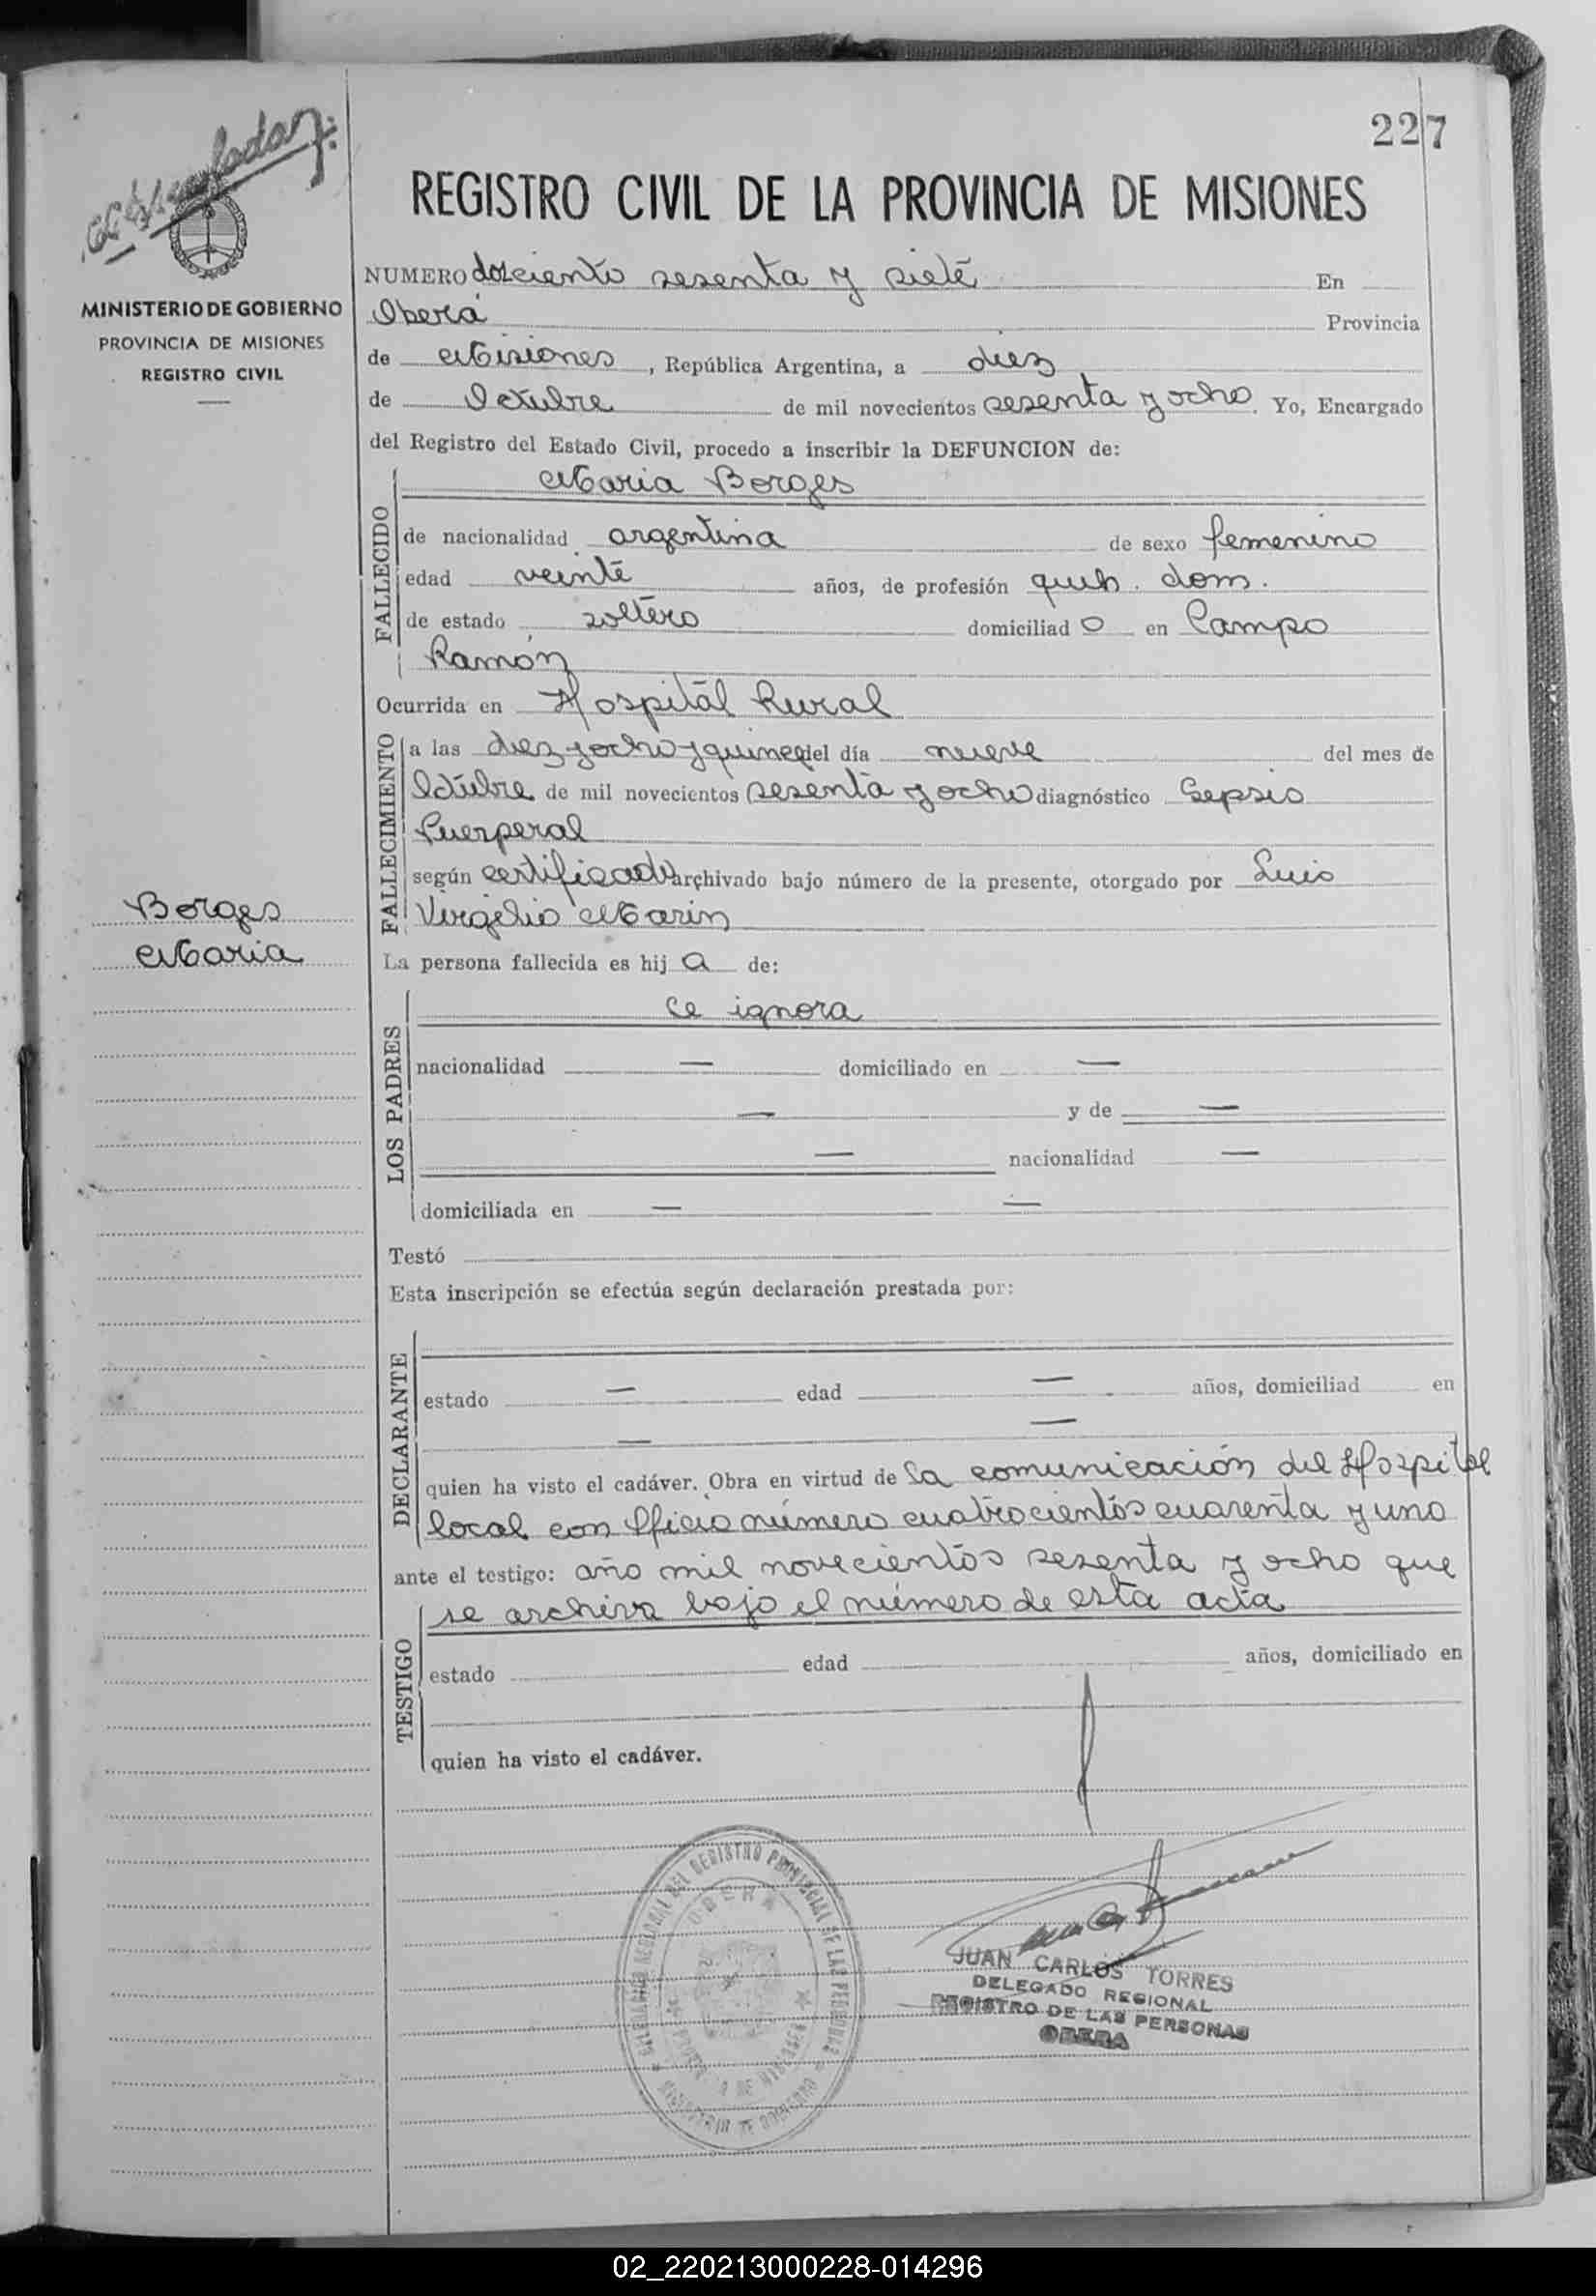 227
REGISTRO CIVIL DE LA PROVINCIA DE MISIONES
MINISTERIO DE GOBIERNO
PROVINCIA DE MISIONES
REGISTRO CIVIL
NUMERO dosciento sesenta y siete En
Oberá Provincia
de Misiones, República Argentina, a diez
de Octubre de mil novecientos sesenta y ocho. Yo, Encargado
del Registro del Estado Civil, procedo a inscribir la DEFUNCION de:
Maria Borges
FALLECIDO
de nacionalidad argentina de sexo femenino
edad veinte años, de profesión queh. dom.
de estado soltero domiciliad o en Campo
Ramón
Ocurrida en Hospital Rural
FALLECIMIENTO
a las diez y ocho y quince del día nueve del mes de
Octubre de mil novecientos sesenta y ocho diagnóstico Sepsis
Puerperal
según certificado archivado bajo número de la presente, otorgado por Luis
Virgilio Marin
Borges
Maria
La persona fallecida es hij a de:
LOS PADRES
Se ignora
nacionalidad — domiciliado en —
— y de —
— nacionalidad —
domiciliada en — —
Testó
Esta inscripción se efectúa según declaración prestada por:
DECLARANTE
estado — edad — años, domiciliad en
— —
quien ha visto el cadáver. Obra en virtud de la comunicación del Hospital
local con Oficio número cuatrocientos cuarenta y uno
ante el testigo: año mil novecientos sesenta y ocho que
se archiva bajo el número de esta acta
TESTIGO
estado edad años, domiciliado en
quien ha visto el cadáver.
REGISTRO PROVINCIAL DE LAS PERSONAS
OBERA
JUAN CARLOS TORRES
DELEGADO REGIONAL
REGISTRO DE LAS PERSONAS
OBERA
02_220213000228-014296